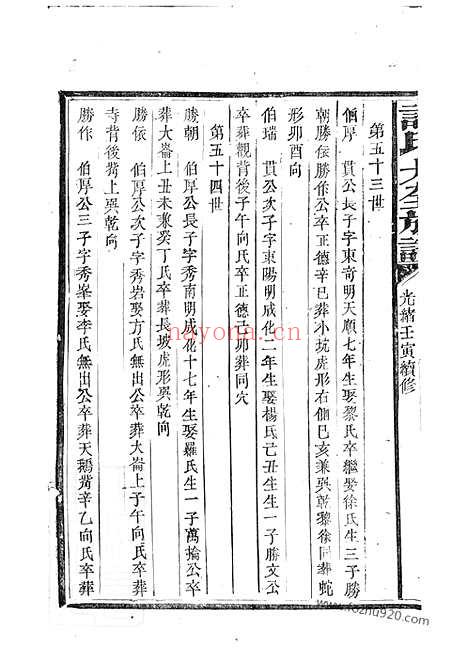 氏大全族譜 光緒壬寅續修
第五十三世
伯厚 貫公長子字東奇明天順七年生娶黎氏卒繼娶徐氏生三子勝
朝勝依勝作公卒正德辛巳葬小坑虎形右側巳亥兼巽乾黎徐同葬蛇
形卯酉向
伯瑞 貫公次子字東陽明成化二年生娶楊氏己丑生生一子勝文公
卒葬觀背後子午向氏卒正德己卯葬同穴
第五十四世
勝朝 伯厚公長子字秀南明成化十七年生娶羅氏生一子萬掄公卒
葬大崙上丑未兼癸丁氏卒葬長坡虎形巽乾向
勝依 伯厚公次子字秀岩娶方氏無出公卒葬大崙上子午向氏卒葬
寺背後崙上巽乾向
勝作 伯厚公三子字秀峯娶李氏無出公卒葬天鵝崙辛乙向氏卒葬
nayona.cn
www.fozhu920.com